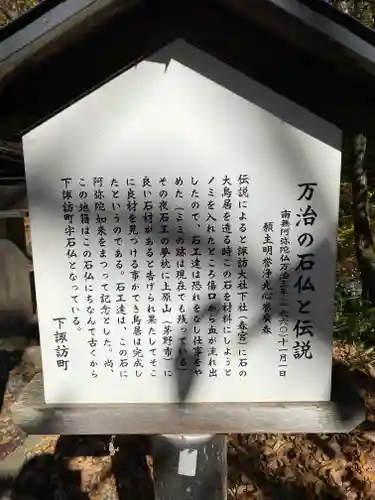 万治の石仏と伝説
南無阿弥陀仏万治三年(一六六〇)十一月一日
願主明誉浄光心誉廣春
伝説によると諏訪大社下社(春宮)に石の
大鳥居を造る時にこの石を材料にしようと
ノミを入れたところ傷口から血が流れ出
したので、石工達は恐れをなし仕事をや
めた(ノミの跡は現在でも残っている)
その夜石工の夢枕に上原山(茅野市)に
良い石材があると告げられ果たしてそこ
に良材を見つける事ができ鳥居は完成し
たというのである。石工達は、この石に
阿弥陀如来をまつって記念とした。尚、
この地籍はこの石仏にちなんで古くから
下諏訪町字石仏となっている。
下諏訪町